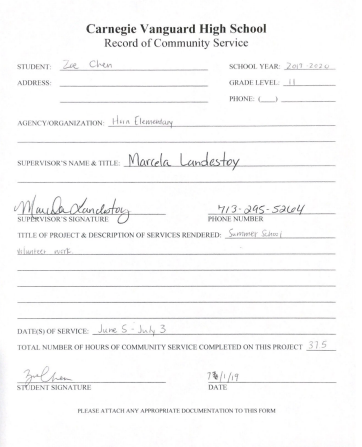 Carnegie Vanguard High School
Record of Community Service
STUDENT: Zoe Chen SCHOOL YEAR: 2019 2020
ADDRESS: GRADE LEVEL: 11
PHONE: ( )
AGENCY/ORGANIZATION: Elementary
SUPERVISOR'S NAME & TITLE: Marcela Landestoy
Marcela Landestoy 713-295-5264
SUPERVISOR'S SIGNATURE PHONE NUMBER
TITLE OF PROJECT & DESCRIPTION OF SERVICES RENDERED: Summer School
volunteer work
DATE(S) OF SERVICE: June 5 - July 3
TOTAL NUMBER OF HOURS OF COMMUNITY SERVICE COMPLETED ON THIS PROJECT 37.5
Zoe Chen /1/19
STUDENT SIGNATURE DATE
PLEASE ATTACH ANY APPROPRIATE DOCUMENTATION TO THIS FORM